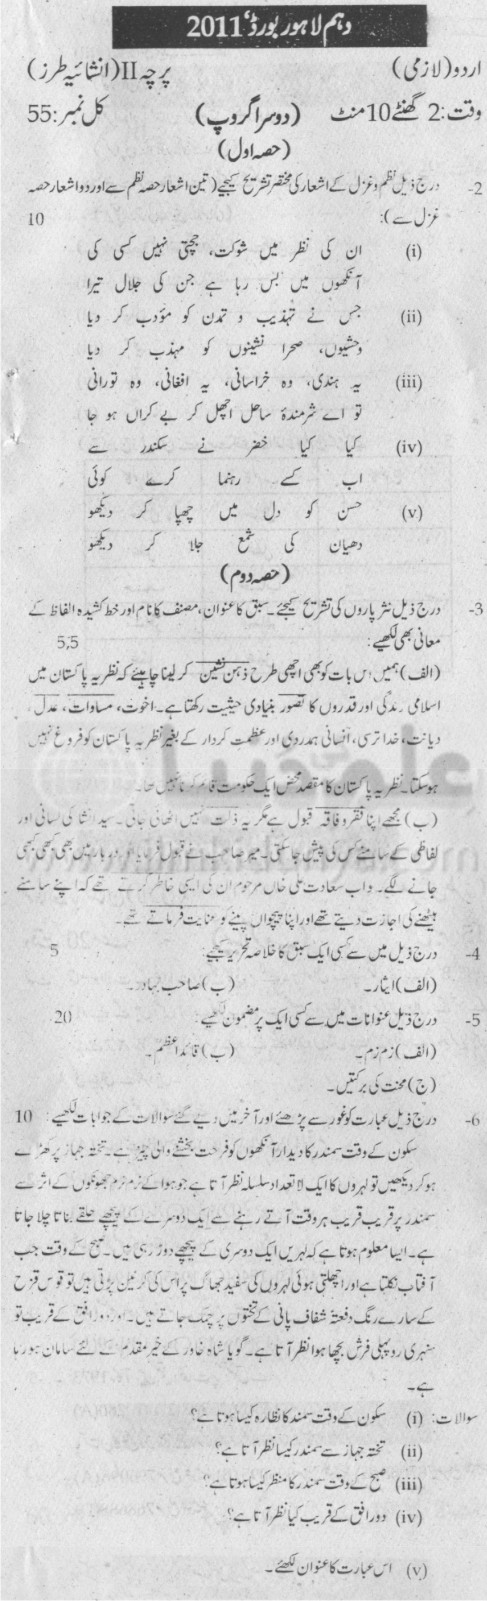 دہم لاہور بورڈ، 2011
اردو (لازمی) پرچہ II (انشائیہ طرز)
وقت: 2 گھنٹے 10 منٹ (دوسرا گروپ) کل نمبر: 55
(حصہ اول)
2- درج ذیل نظم و غزل کے اشعار کی مختصر تشریح کیجیے (تین اشعار حصہ نظم سے اور دو اشعار حصہ
غزل سے): 10
(i) ان کی نظر میں شوکت، جچتی نہیں کسی کی
آنکھوں میں بس رہا ہے جن کی جلال تیرا
(ii) جس نے تہذیب و تمدن کو مؤدب کر دیا
وحشیوں، صحرا نشینوں کو مہذب کر دیا
(iii) یہ ہندی، وہ خراسانی، یہ افغانی، وہ تورانی
تو اے شرمندۂ ساحل اچھل کر بے کراں ہو جا
(iv) کیا کیا خضر نے سکندر سے
اب کسے رہنما کرے کوئی
(v) حسن کو دل میں چھپا کر دیکھو
دھیان کی شمع جلا کر دیکھو
(حصہ دوم)
3- درج ذیل نثر پاروں کی تشریح کیجئے۔ سبق کا عنوان، مصنف کا نام اور خط کشیدہ الفاظ کے
معانی بھی لکھیے: 5,5
(الف) ہمیں اس بات کو بھی اچھی طرح ذہن نشین کر لینا چاہیئے کہ نظریہ پاکستان میں
اسلامی زندگی اور قدروں کا تصور بنیادی حیثیت رکھتا ہے۔ اخوت، مساوات، عدل،
دیانت، خدا ترسی، انسانی ہمدردی اور عظمت کردار کے بغیر نظریہ پاکستان کو فروغ نہیں
ہو سکتا۔ نظریہ پاکستان کا مقصد محض ایک حکومت قائم کرنا نہیں تھا۔
(ب) مجھے اپنا فقر و فاقہ قبول ہے مگر یہ ذلت نہیں اٹھائی جاتی۔ سید انشا کی لسانی اور
لفاظی کے سامنے کس کی پیش جا سکتی۔ میر صاحب نے قبول فرمایا اور دربار میں بھی کبھی کبھی
جانے لگے۔ نواب سعادت علی خاں مرحوم ان کی ایسی خاطر کرتے تھے کہ اپنے سامنے
بیٹھنے کی اجازت دیتے تھے اور اپنا پیچواں پینے کو عنایت فرماتے تھے۔
4- درج ذیل میں سے کسی ایک سبق کا خلاصہ تحریر کیجیے: 5
(الف) ایثار۔ (ب) صاحب بہادر۔
5- درج ذیل عنوانات میں سے کسی ایک پر مضمون لکھیے: 20
(الف) زم زم۔ (ب) قائد اعظم۔
(ج) محنت کی برکتیں۔
6- درج ذیل عبارت کو غور سے پڑھئے اور آخر میں دیے گئے سوالات کے جوابات لکھیے: 10
سکون کے وقت سمندر کا دیدار آنکھوں کو فرحت بخشنے والی چیز ہے۔ تختہ جہاز پر کھڑے
ہو کر دیکھیں تو لہروں کا ایک لا تعداد سلسلہ نظر آتا ہے جو ہوا کے نرم نرم جھونکوں کے اثر سے
سمندر پر قریب قریب ہر وقت آتے رہنے سے ایک دوسرے کے پیچھے حلقے بناتا چلا جاتا
ہے۔ ایسا معلوم ہوتا ہے کہ لہریں ایک دوسری کے پیچھے دوڑ رہی ہیں۔ صبح کے وقت جب
آفتاب نکلتا ہے اور اچھلتی ہوئی لہروں کی سفید جھاگ پر اس کی کرنیں پڑتی ہیں تو قوس قزح
کے سارے رنگ دفعتہً شفاف پانی کے تختوں پر چمک جاتے ہیں۔ اور دور افق کے قریب تو
سنہری روپہلی فرش بچھا ہوا نظر آتا ہے۔ گویا شاہ خاور کے خیر مقدم کے لئے سامان ہو رہا
ہے۔
سوالات: (i) سکون کے وقت سمندر کا نظارہ کیسا ہوتا ہے؟
(ii) تختہ جہاز سے سمندر کیسا نظر آتا ہے؟
(iii) صبح کے وقت سمندر کا منظر کیسا ہوتا ہے؟
(iv) دور افق کے قریب کیا نظر آتا ہے؟
(v) اس عبارت کا عنوان لکھئے۔